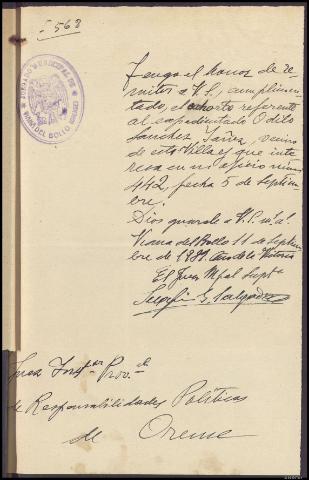 568
JUZGADO MUNICIPAL DE
VIANA DEL BOLLO
Tengo el honor de re-
mitir a V.S., cumplimen-
tado, el exhorto referente
al expedientado Odilo
Sanchez Yañez, vecino
de esta Villa, es que inte-
resa en su oficio núm.
442, fecha 5 de Septiem-
bre.
Dios guarde a V.S. m. a.
Viana del Bollo 11 de Septiem-
bre de 1939. Año de la Victoria
El Juez Mpal Supte
S. Salgado
Juez Instor Prov.al
de Responsabilidades Políticas
de Orense